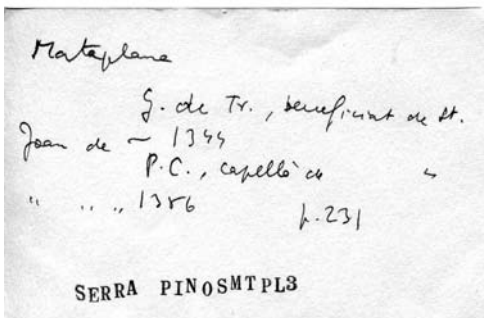 Mataplana
G. de Tr., beneficiat de St.
Joan de ~ 1344
P.C., capellà de "
" " " 1386
p. 231
SERRA PINOSMTPL3